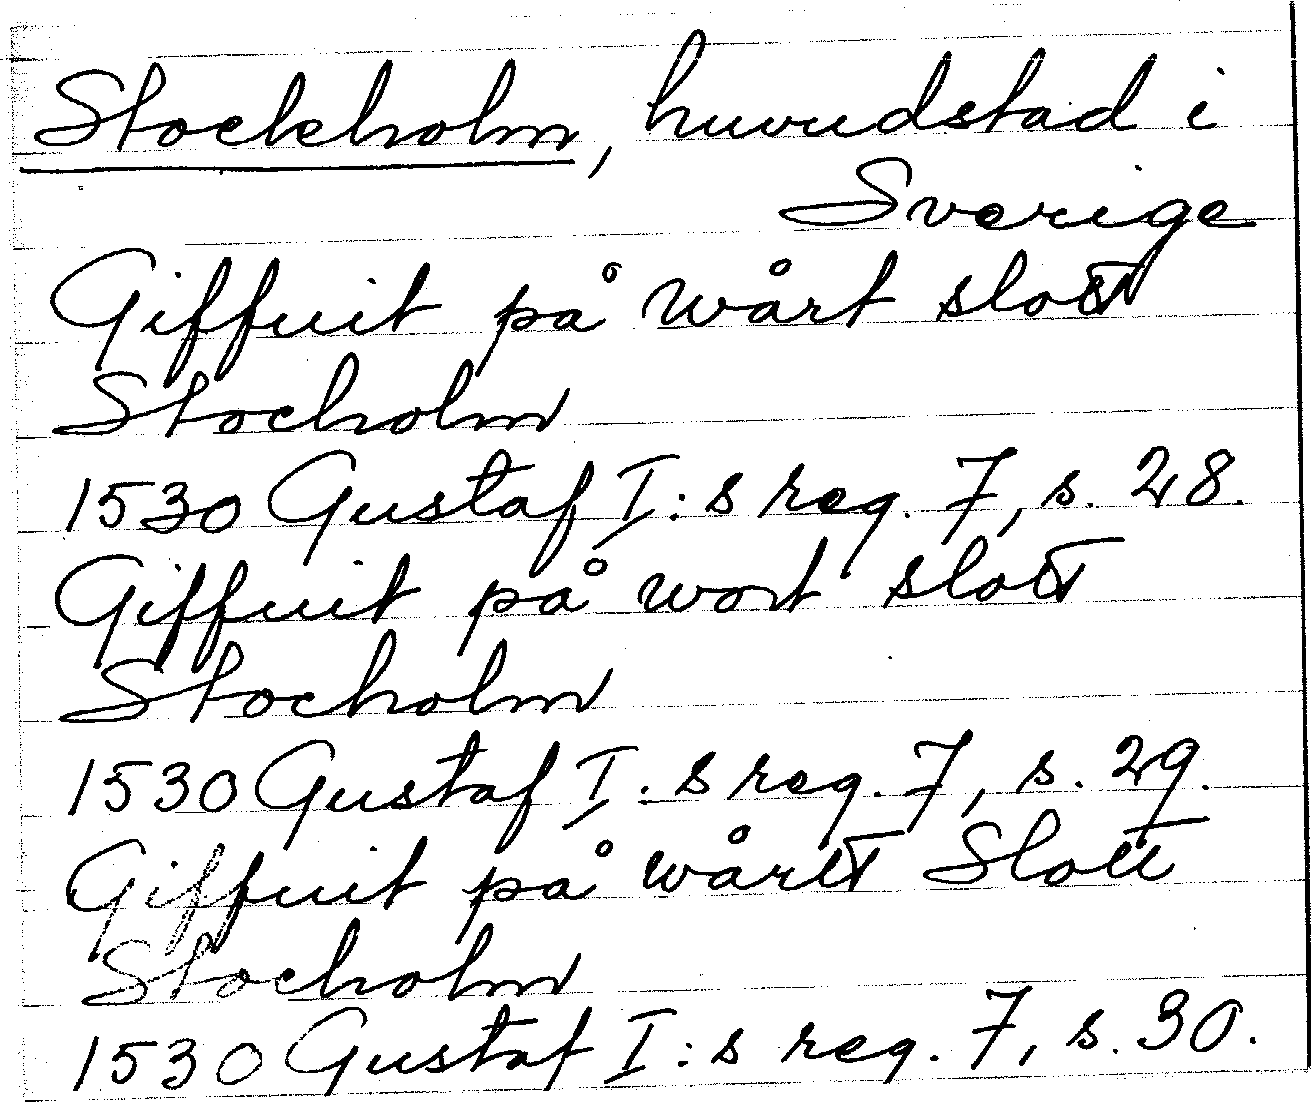 Stockholm, huvudstad i
Sverige
Giffuit på wårt slott
Stocholm
1530 Gustaf I:s reg. 7, s. 28.
Giffuit på wort slott
Stocholm
1530 Gustaf I:s reg. 7, s. 29.
Giffuit på wårtt Slott
Stocholm
1530 Gustaf I:s reg. 7, s. 30.